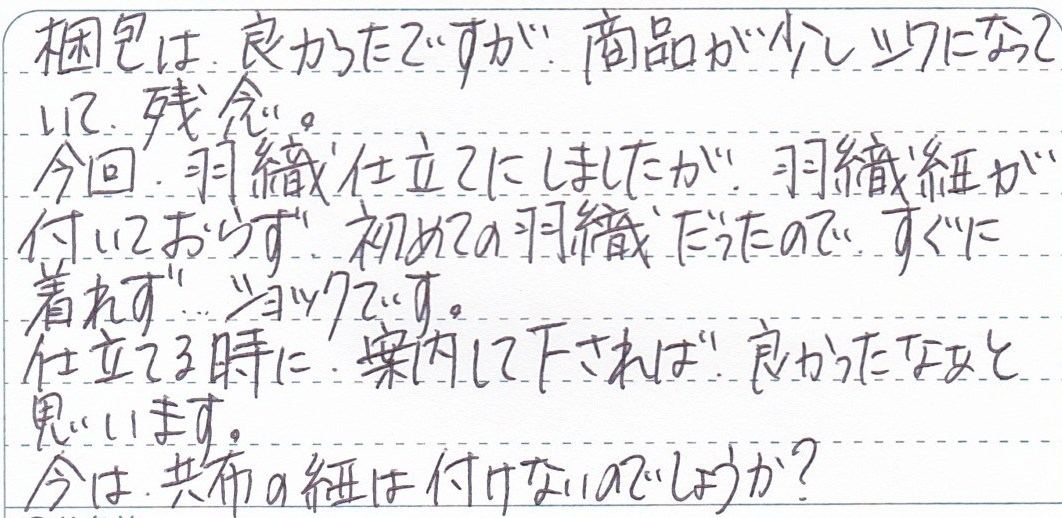 梱包は、良かったですが、商品が少しシワになって
いて、残念。
今回、羽織仕立てにしましたが、羽織紐が
付いておらず、初めての羽織だったので、すぐに
着れず…ショックです。
仕立てる時に、案内して下されば、良かったなぁと
思います。
今は、共布の紐は付けないのでしょうか?